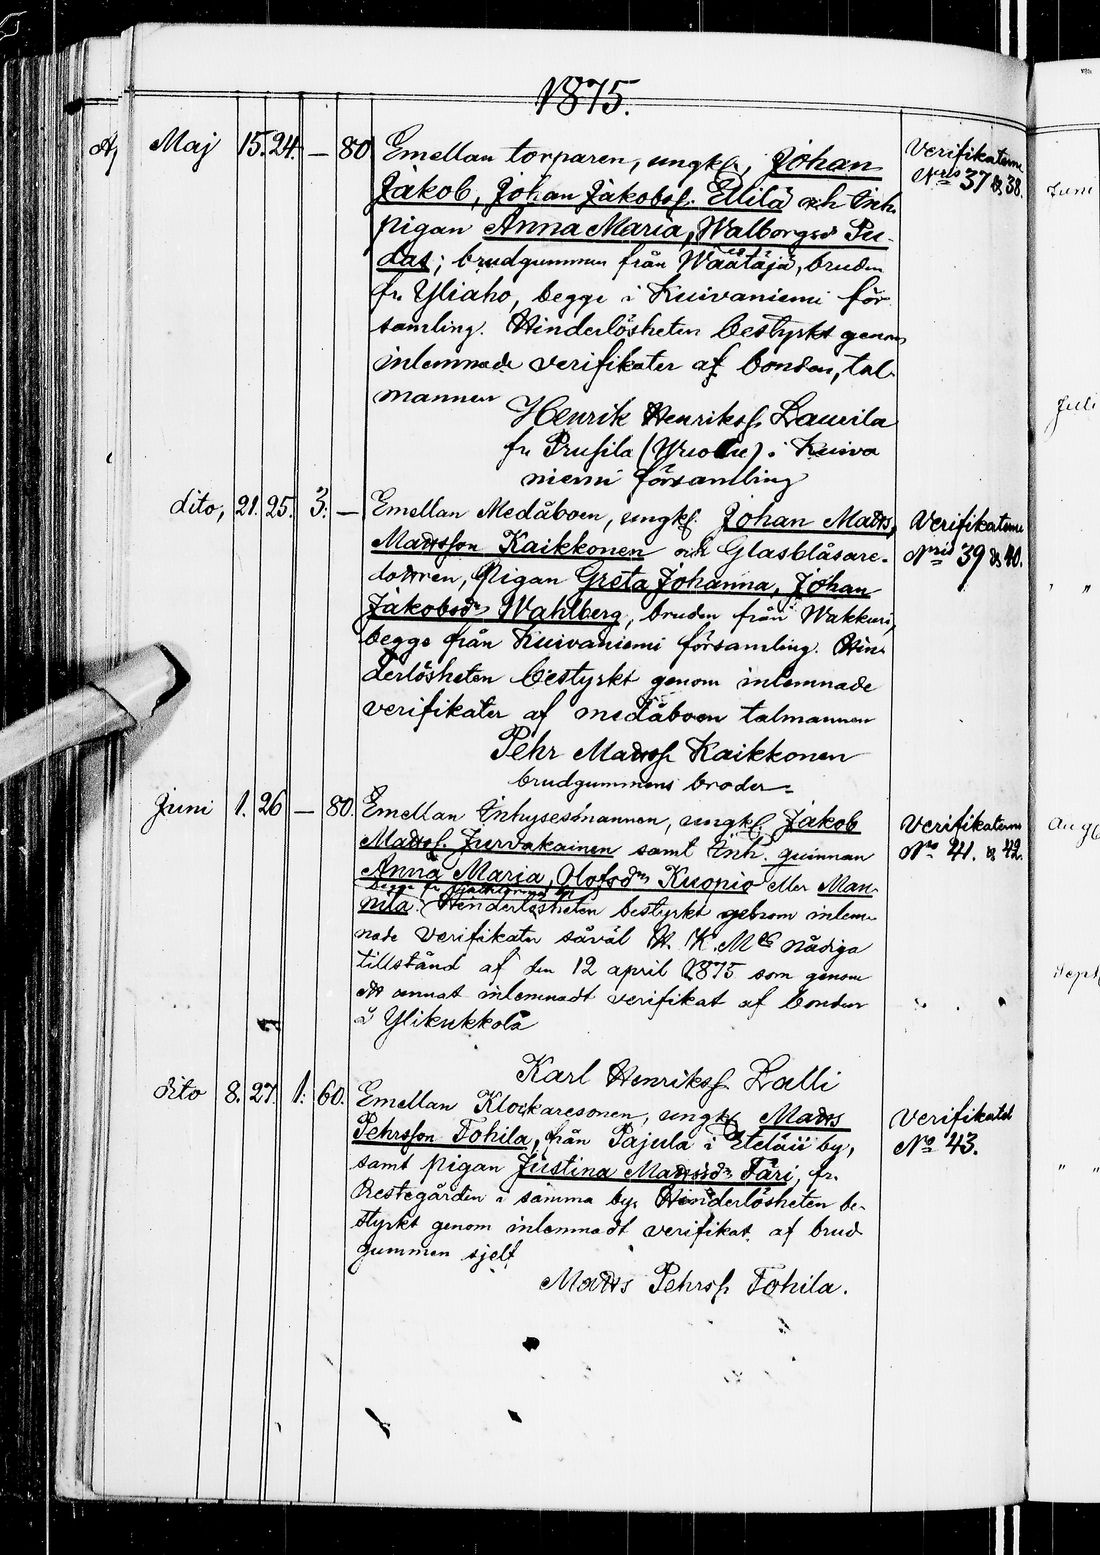 1875.
Maj 15. 24. — 80 Emellan torparen, ungk., Johan
Jakob, Johan Jakobss. Ellilä och Inh.
pigan Anna Maria, Walborgsd Pu-
das; brudgummen från Wäätäjä, bruden
fr. Yliaho, begge i Kuivaniemi för
samling. Hinderlösheten bestyrkt genom
inlemnade verifikater af bonden, tal-
mannen
Henrik Henrikss.
fr. i Kuiva
niemi församling
Verifikaterne
Nris 37 & 38.
dito, 21. 25. 3. — Emellan Medåboen, ungk. Johan Matts,
Mattsson Kaikkonen och Glasblåsare-
dottren, Pigan Greta Johanna, Johan
Jakobsdr Wahlberg, bruden från Wakkuri,
begge från Kuivaniemi församling. Hin-
derlösheten bestyrkt genom inlemnade
verifikater af medåboen talmannen
Pehr Matts. Kaikkonen
brudgummens broder =
Verifikaterne
Nris 39 & 40.
Juni 1. 26 — 80. Emellan Inhysesmannen, ungk. Jakob
Matts. Jurvakainen samt Inh. quinnan
Anna Maria, Olofsdr Kuopio eller Man-
nila. Hinderlösheten bestyrkt genom inlem-
nade verifikater såväl H. K. Mts nådiga
tillstånd af den 12 april 1875 som genom
ett annat inlemnadt verifikat af bonden
å Ylikukkola
Karl Henrikss. Lalli
Verifikaterne
No 41. & 42.
dito 8. 27. 1: 60. Emellan Klockaresonen, ungk. Matts
Pehrsson Tohila, från Pajula i Eteläii by,
samt pigan Justina Mattsdr Färi, fr.
Prestegården i samma by. Hinderlösheten be-
styrkt genom inlemnadt verifikat af brud
gummen sjelf
Matts Pehrss. Tohila.
Verifikatet
No 43.
Juni
Juli
" "
Aug
Sept
" "